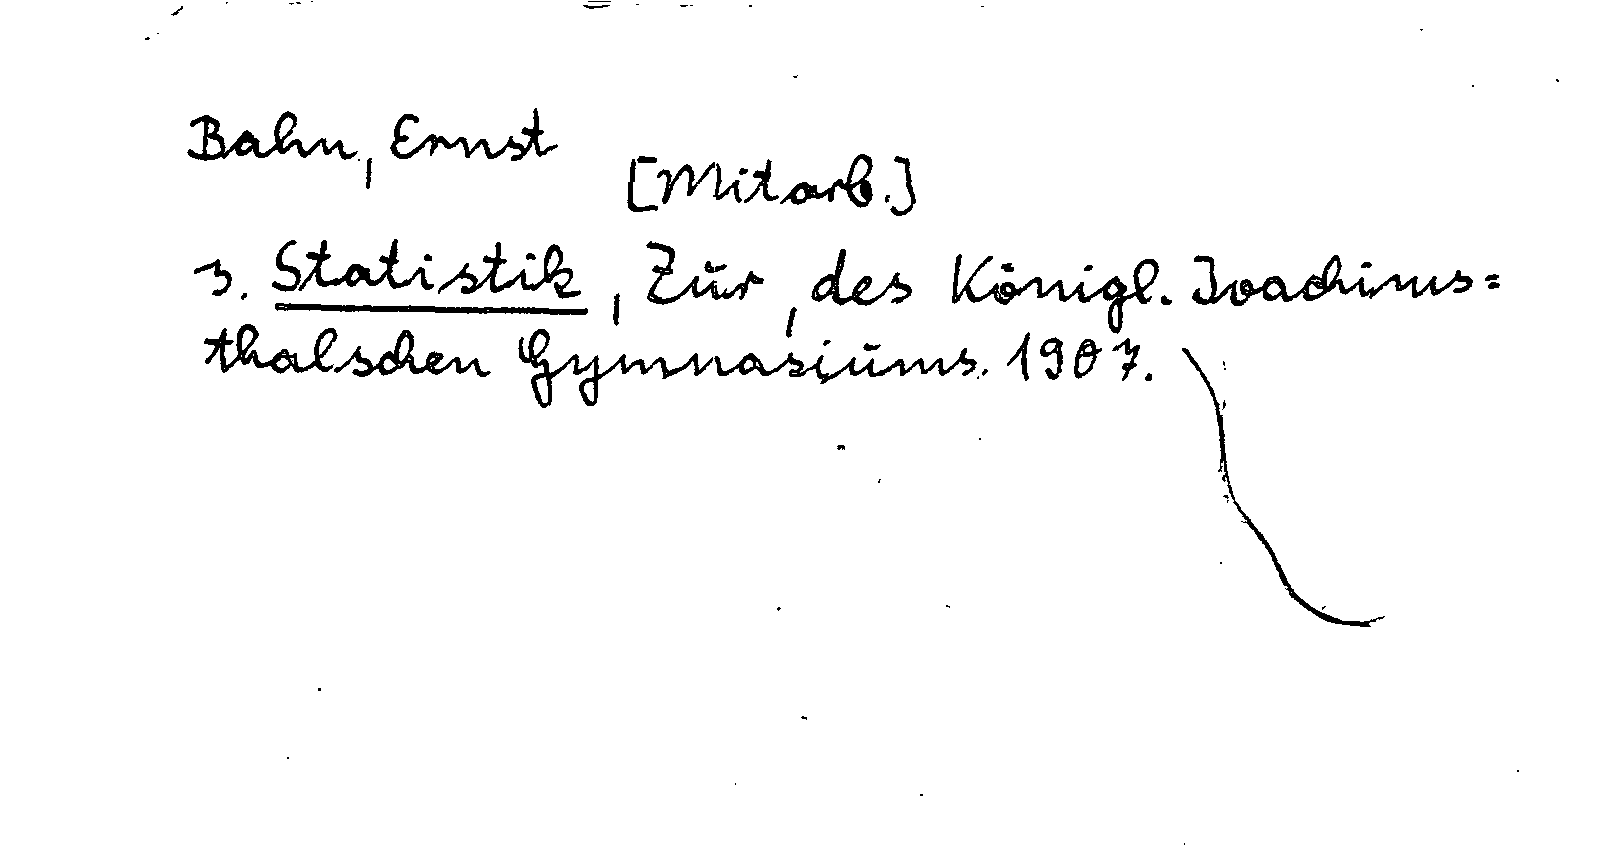 Bahn, Ernst
[Mitarb.]
s. Statistik, Zur, des Königl. Joachims=
thalschen Gymnasiums. 1907.